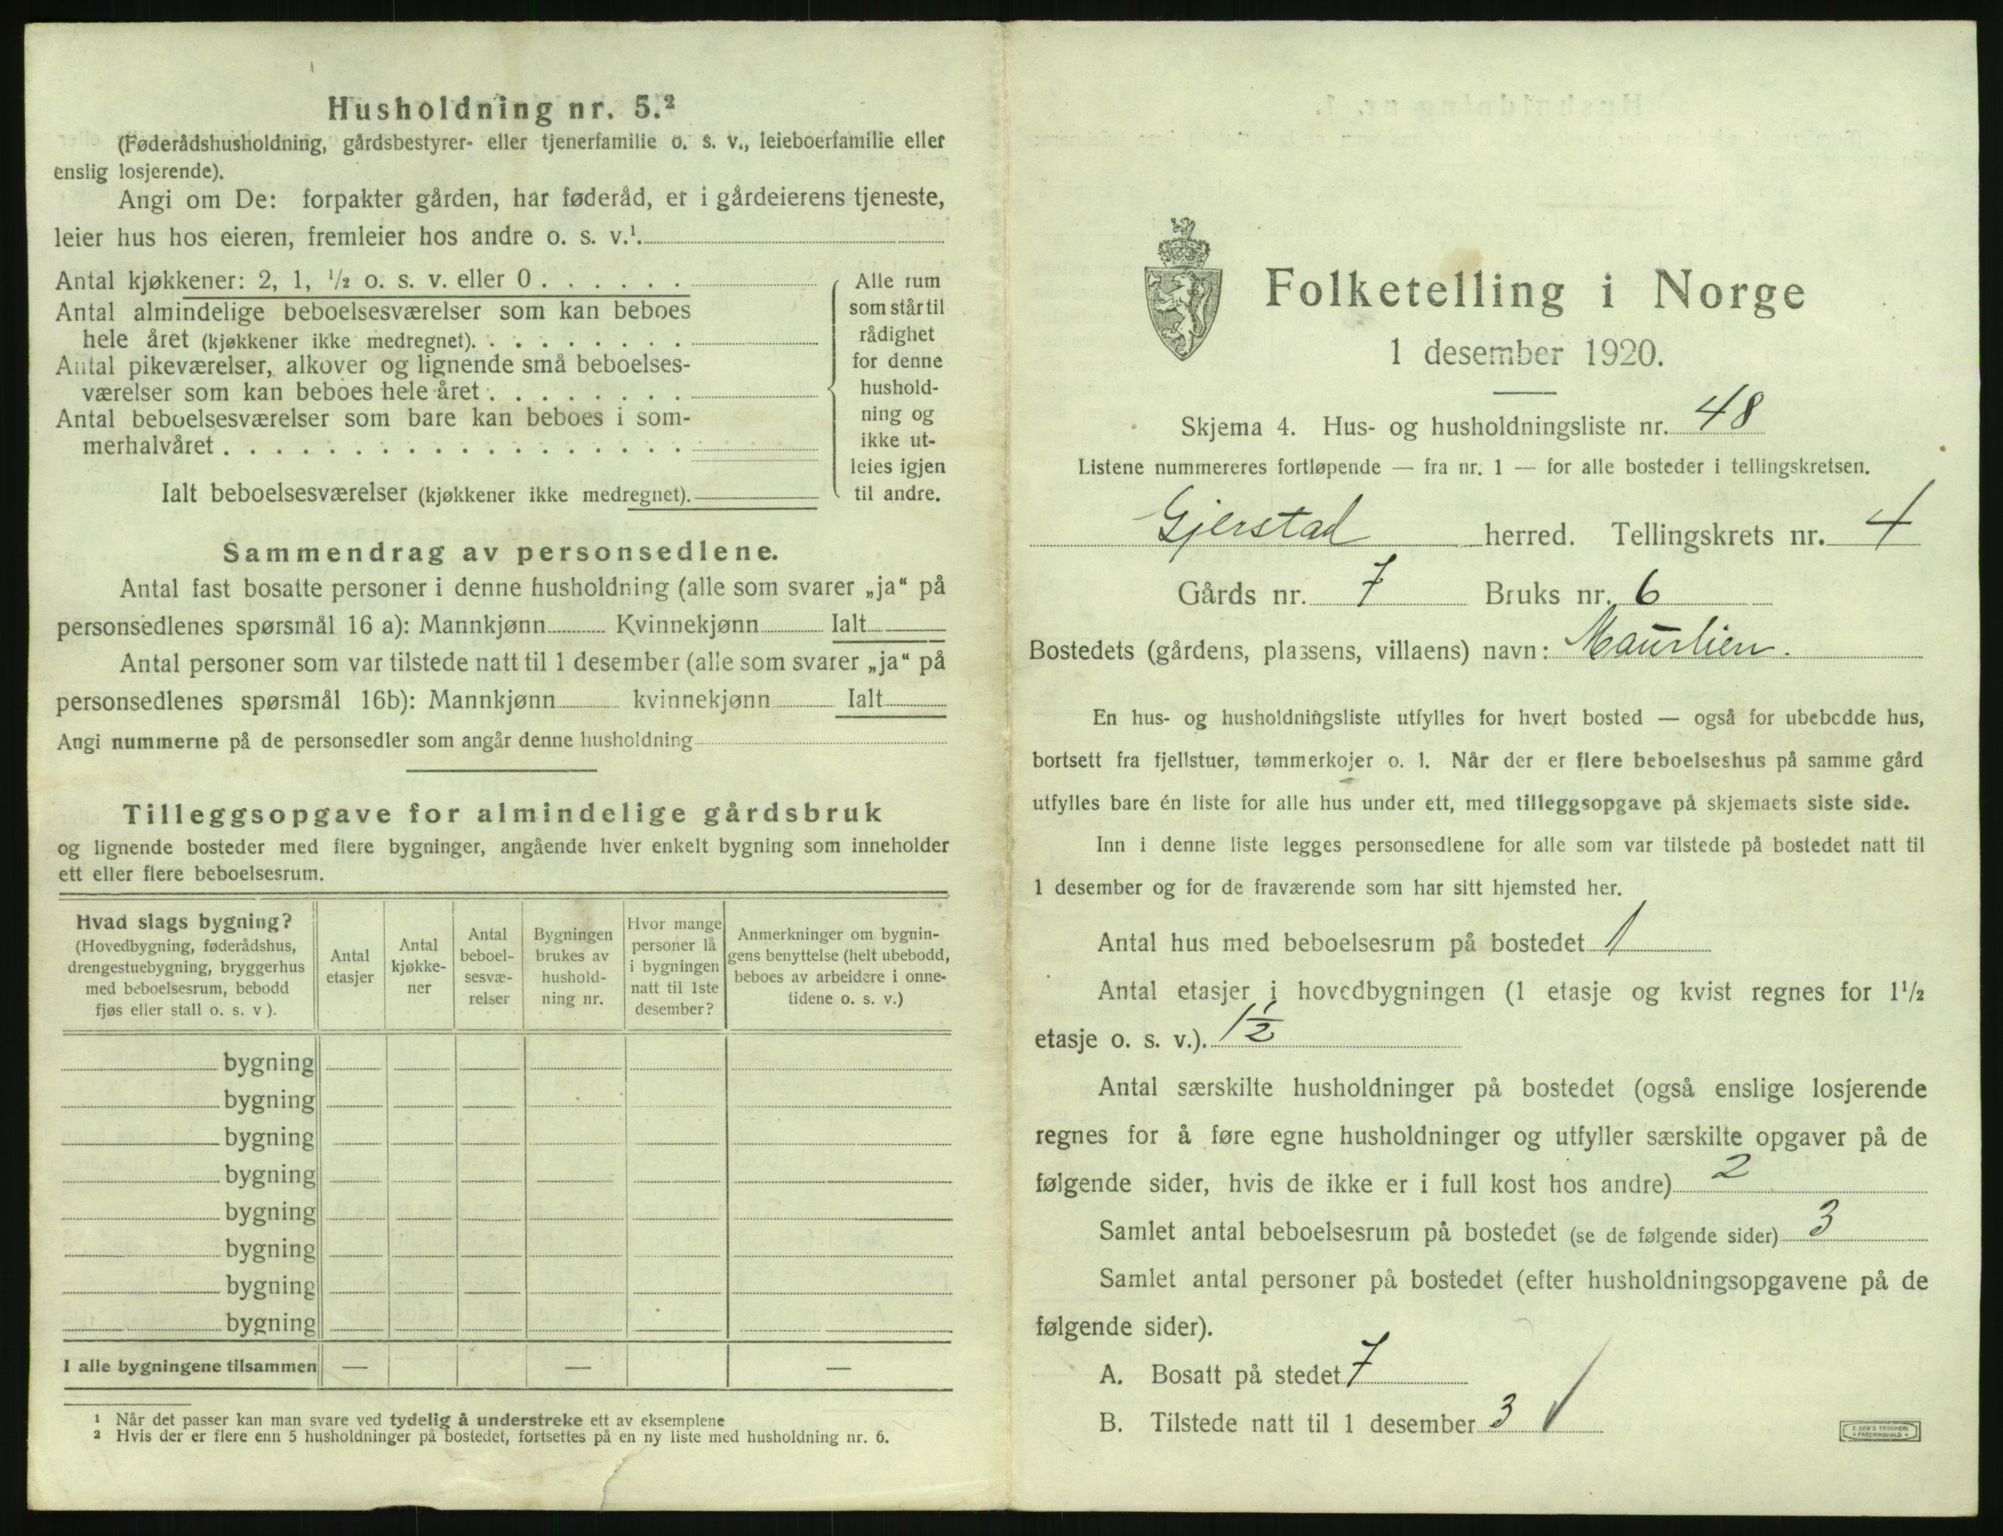 Husholdning nr. 5.²
(Føderådshusholdning, gårdsbestyrer- eller tjenerfamilie o. s. v., leieboerfamilie eller
enslig losjerende).
Angi om De: forpakter gården, har føderåd, er i gårdeierens tjeneste,
leier hus hos eieren, fremleier hos andre o. s. v.¹.
Antal kjøkkener: 2, 1, ½ o. s. v. eller 0 . . . . . .
Antal almindelige beboelsesværelser som kan beboes
hele året (kjøkkener ikke medregnet). . . . . . . . .
Antal pikeværelser, alkover og lignende små beboelses-
værelser som kan beboes hele året . . . . . . . .
Antal beboelsesværelser som bare kan beboes i som-
merhalvåret . . . . . . . . . . . . . . . . . .
Ialt beboelsesværelser (kjøkkener ikke medregnet).
Alle rum
som står til
rådighet
for denne
hushold-
ning og
ikke ut-
leies igjen
til andre.
Sammendrag av personsedlene.
Antal fast bosatte personer i denne husholdning (alle som svarer „ja“ på
personsedlenes spørsmål 16 a): Mannkjønn Kvinnekjønn Ialt
Antal personer som var tilstede natt til 1 desember (alle som svarer „ja“ på
personsedlenes spørsmål 16b): Mannkjønn kvinnekjønn Ialt
Angi nummerne på de personsedler som angår denne husholdning
Tilleggsopgave for almindelige gårdsbruk
og lignende bosteder med flere bygninger, angående hver enkelt bygning som inneholder
ett eller flere beboelsesrum.
Hvad slags bygning?
(Hovedbygning, føderådshus,
drengestuebygning, bryggerhus
med beboelsesrum, bebodd
fjøs eller stall o. s. v ).
Antal
etasjer
Antal
kjøkke-
ner
Antal
beboel-
sesvæ-
relser
Bygningen
brukes av
hushold-
ning nr.
Hvor mange
personer lå
i bygningen
natt til 1ste
desember?
Anmerkninger om bygnin-
gens benyttelse (helt ubebodd,
beboes av arbeidere i onne-
tidene o. s. v.)
bygning
bygning
bygning
bygning
bygning
bygning
bygning
bygning
I alle bygningene tilsammen — — —
¹ Når det passer kan man svare ved tydelig å understreke ett av eksemplene
² Hvis der er flere enn 5 husholdninger på bostedet, fortsettes på en ny liste med husholdning nr. 6.
Folketelling i Norge
1 desember 1920.
Skjema 4. Hus- og husholdningsliste nr. 48
Listene nummereres fortløpende — fra nr. 1 — for alle bosteder i tellingskretsen.
Gjerstad herred. Tellingskrets nr. 4
Gårds nr. 7 Bruks nr. 6
Bostedets (gårdens, plassens, villaens) navn: Maurlien.
En hus- og husholdningsliste utfylles for hvert bosted — også for ubebodde hus,
bortsett fra fjellstuer, tømmerkojer o. l. Når der er flere beboelseshus på samme gård
utfylles bare én liste for alle hus under ett, med tilleggsopgave på skjemaets siste side.
Inn i denne liste legges personsedlene for alle som var tilstede på bostedet natt til
1 desember og for de fraværende som har sitt hjemsted her.
Antal hus med beboelsesrum på bostedet 1
Antal etasjer i hovedbygningen (1 etasje og kvist regnes for 1½
etasje o. s. v.). 1½
Antal særskilte husholdninger på bostedet (også enslige losjerende
regnes for å føre egne husholdninger og utfyller særskilte opgaver på de
følgende sider, hvis de ikke er i full kost hos andre) 2
Samlet antal beboelsesrum på bostedet (se de følgende sider) 3
Samlet antal personer på bostedet (efter husholdningsopgavene på de
følgende sider).
A. Bosatt på stedet 7
B. Tilstede natt til 1 desember 3